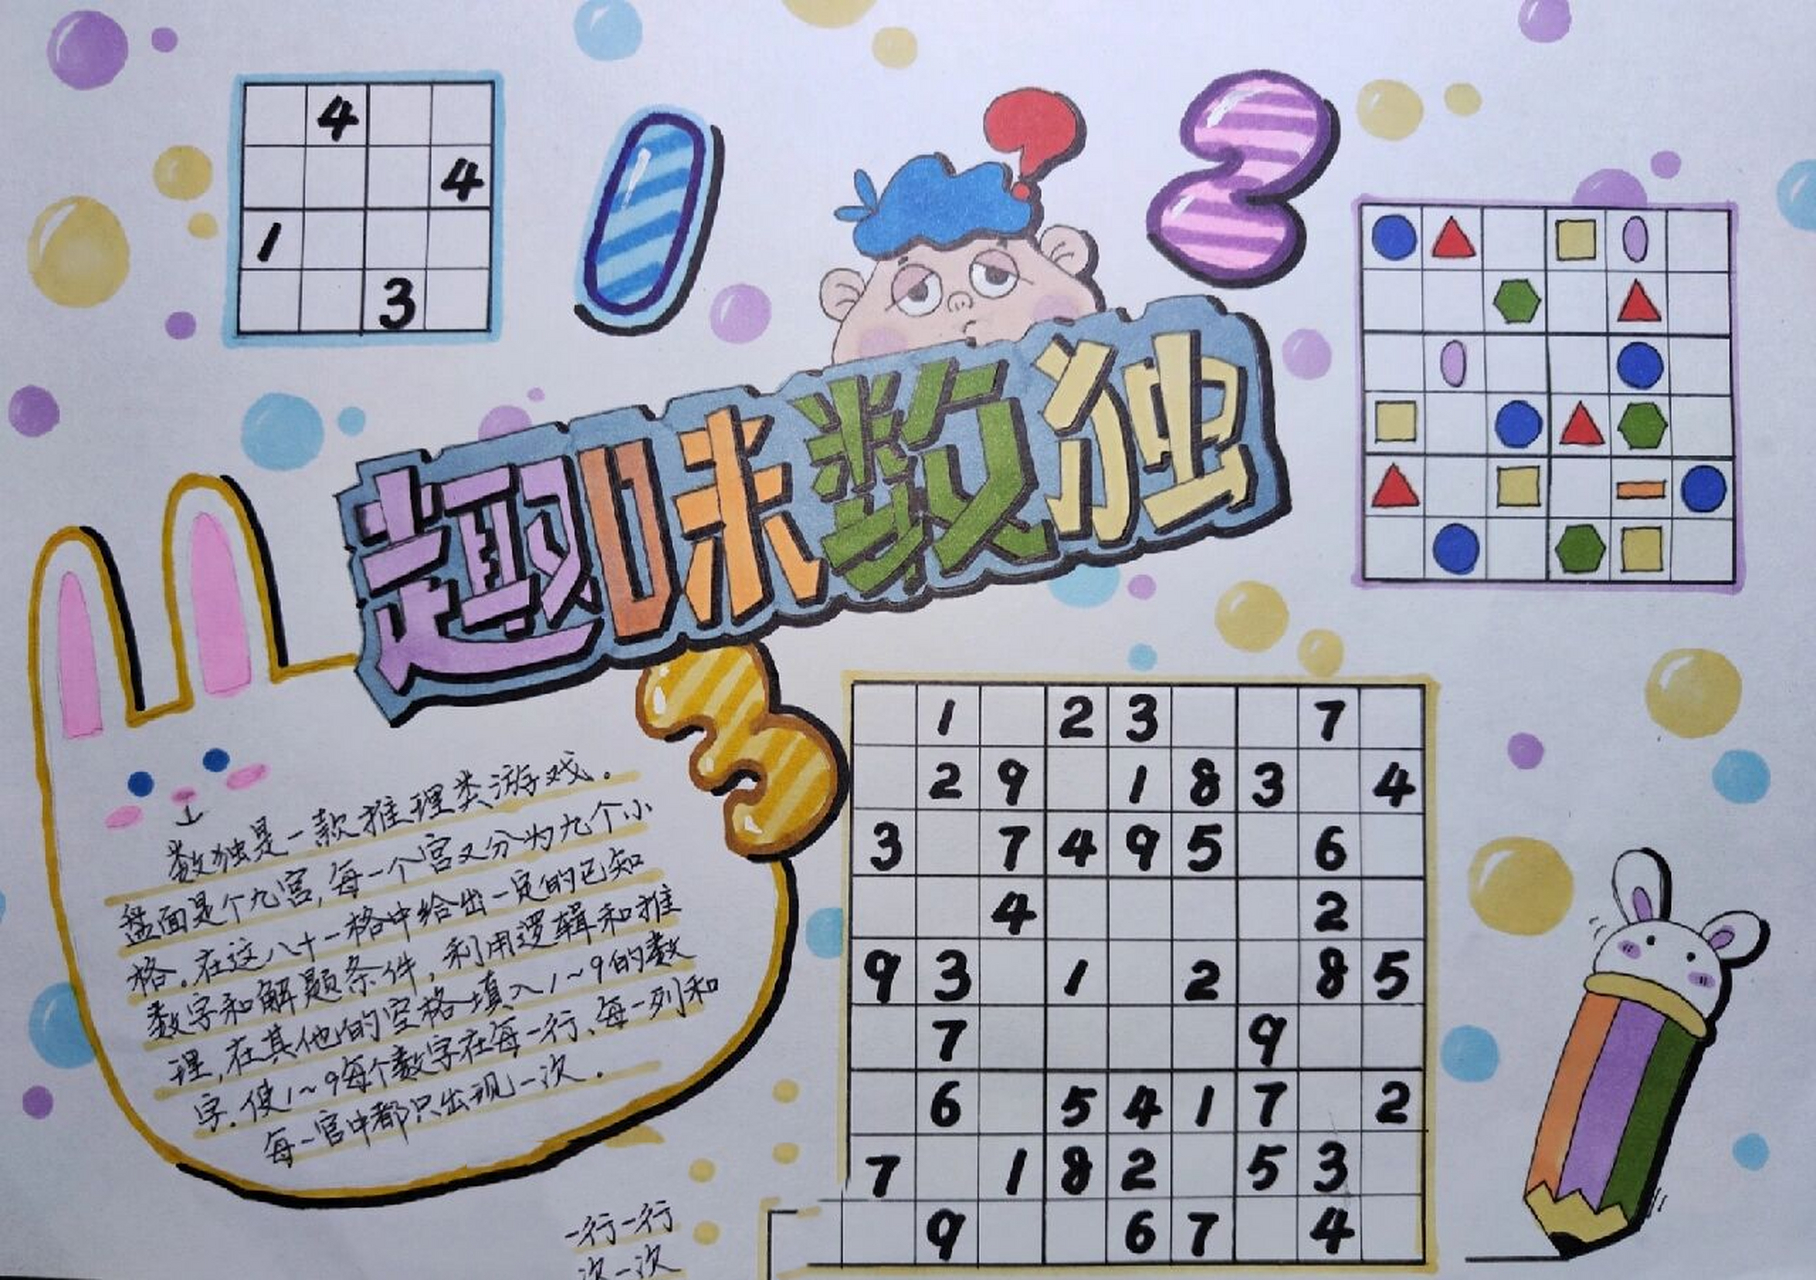 4
4
1
3
0
2
趣味数独
3
数独是一款推理类游戏。
盘面是个九宫,每一个宫又分为九个小
格。在这八十一格中给出一定的已知
数字和解题条件,利用逻辑和推
理,在其他的空格填入1~9的数
字.使1~9每个数字在每一行、每一列和
每一宫中都只出现一次.
1 2 3 7
2 9 1 8 3 4
3 7 4 9 5 6
4 2
9 3 1 2 8 5
7 9
6 5 4 1 7 2
7 1 8 2 5 3
9 6 7 4
一行一行
次一次